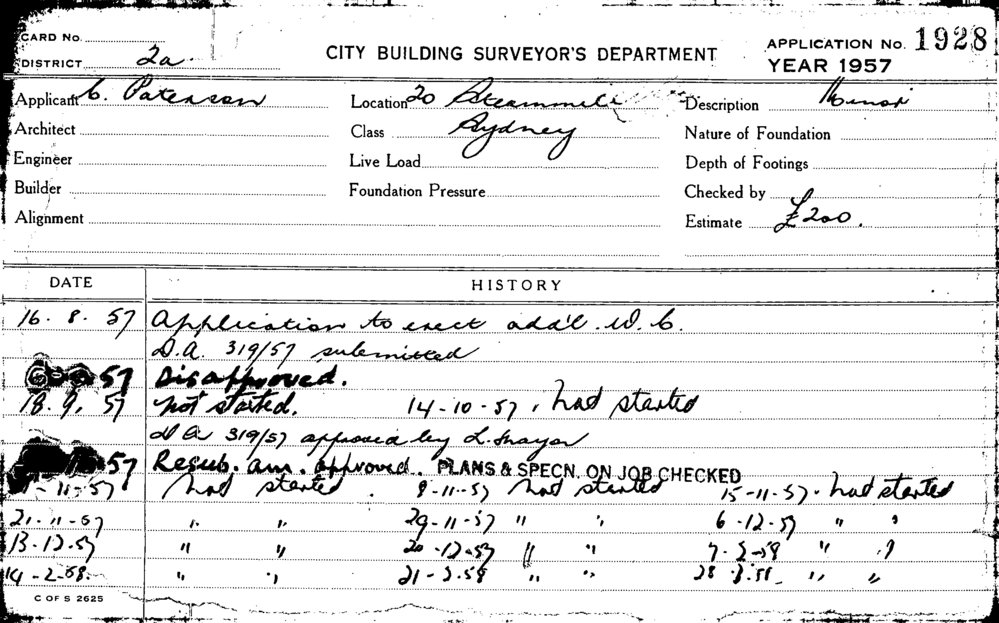 CARD No.
DISTRICT 2a.
CITY BUILDING SURVEYOR'S DEPARTMENT
APPLICATION No. 1928
YEAR 1957
Applicant C. Paterson Location 20 Steammill Description Minor
Architect Class Sydney Nature of Foundation
Engineer Live Load Depth of Footings
Builder Foundation Pressure Checked by
Alignment Estimate £200.
DATE HISTORY
16. 8. 57 Application to erect add'l W.C.
D.A. 319/57 submitted
57 Disapproved.
18. 9. 57 not started. 14-10-57. had started
DA 319/57 approved by L. Mayor
57 Resub. am. approved. PLANS & SPECN. ON JOB CHECKED
1-11-57 had started. 8-11-57 had started 15-11-57. had started
21-11-57 " " 29-11-57 " " 6-12-57 " "
13-12-57 " " 20-12-57 " " 7-2-58 " "
14-2-58. " " 21-2-58 " " 28 " "
C OF S 2625